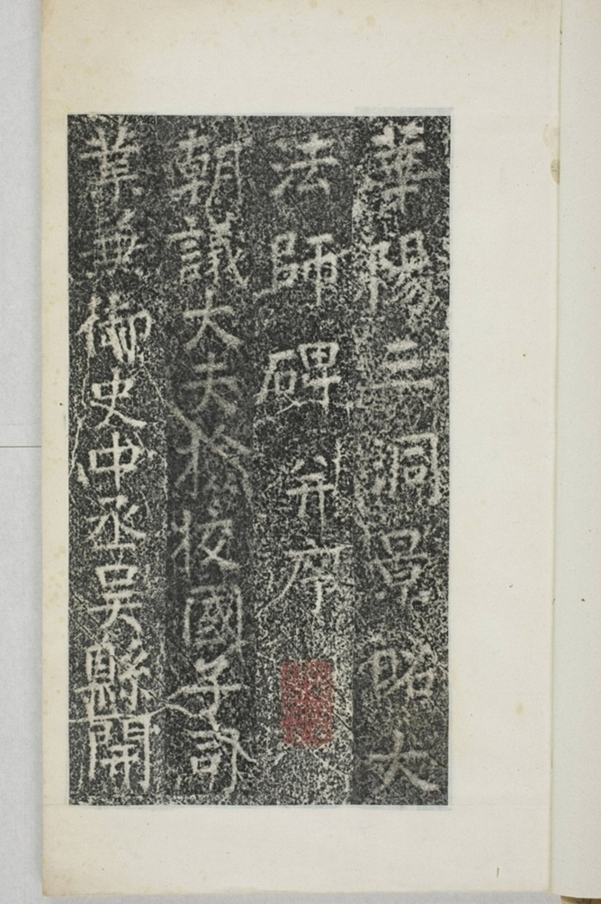 華陽三洞景昭大
法師碑并序
朝議大夫檢校國子司
業兼御史中丞吴縣開